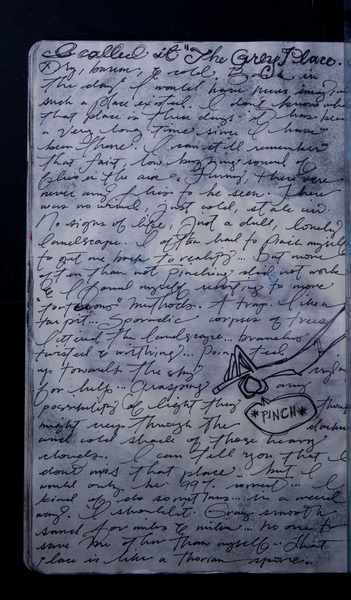 I called it "The Grey Place."
Dry, barren, & cold. Back in
the day I would have never imagined
such a place existed. I don't know where
that place is these days it has been
a very long time since I have
been there. I can still remember
that faint, low buzzing sound of
flies in the air & Funny, there were
never any flies to be seen. There
was no wind, just cold, stale air.
No signs of life, Just a dull, lonely
landscape. I often had to pinch myself
to get me back to reality... But more
often than not pinching did not work
& I found myself resorting to more
"tortuous" methods. A trap. Like a
tar pit... Sporadic corpses of trees
littered the landscape... branches
twisted & writhing... Pointed
up towards the sky
for help... Grasping any
possibility of light they
might through the darker
and cold shade of those heavy
clouds. I can tell you that I
don't miss that place. But I
would only be 99% correct... I
kind of do sometimes... in a weird
way. I shouldn't. Gray smooth
sand for miles & miles... no one to
save me other than myself... that
place is like a
*PINCH*